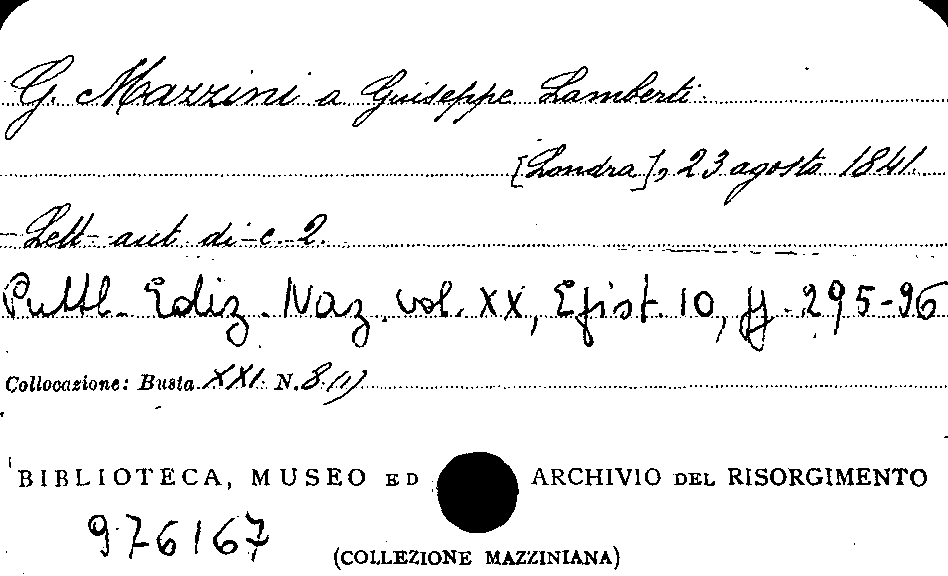 G. Mazzini a Giuseppe Lamberti.
[Londra], 23 agosto 1841.
Lett. aut. di c. 2.
Pubbl. Ediz. Naz. vol. XX, Epist. 10, pp. 295-96
Collocazione: Busta XXI. N. 8 (1)
BIBLIOTECA, MUSEO ED ARCHIVIO DEL RISORGIMENTO
976167
(COLLEZIONE MAZZINIANA)